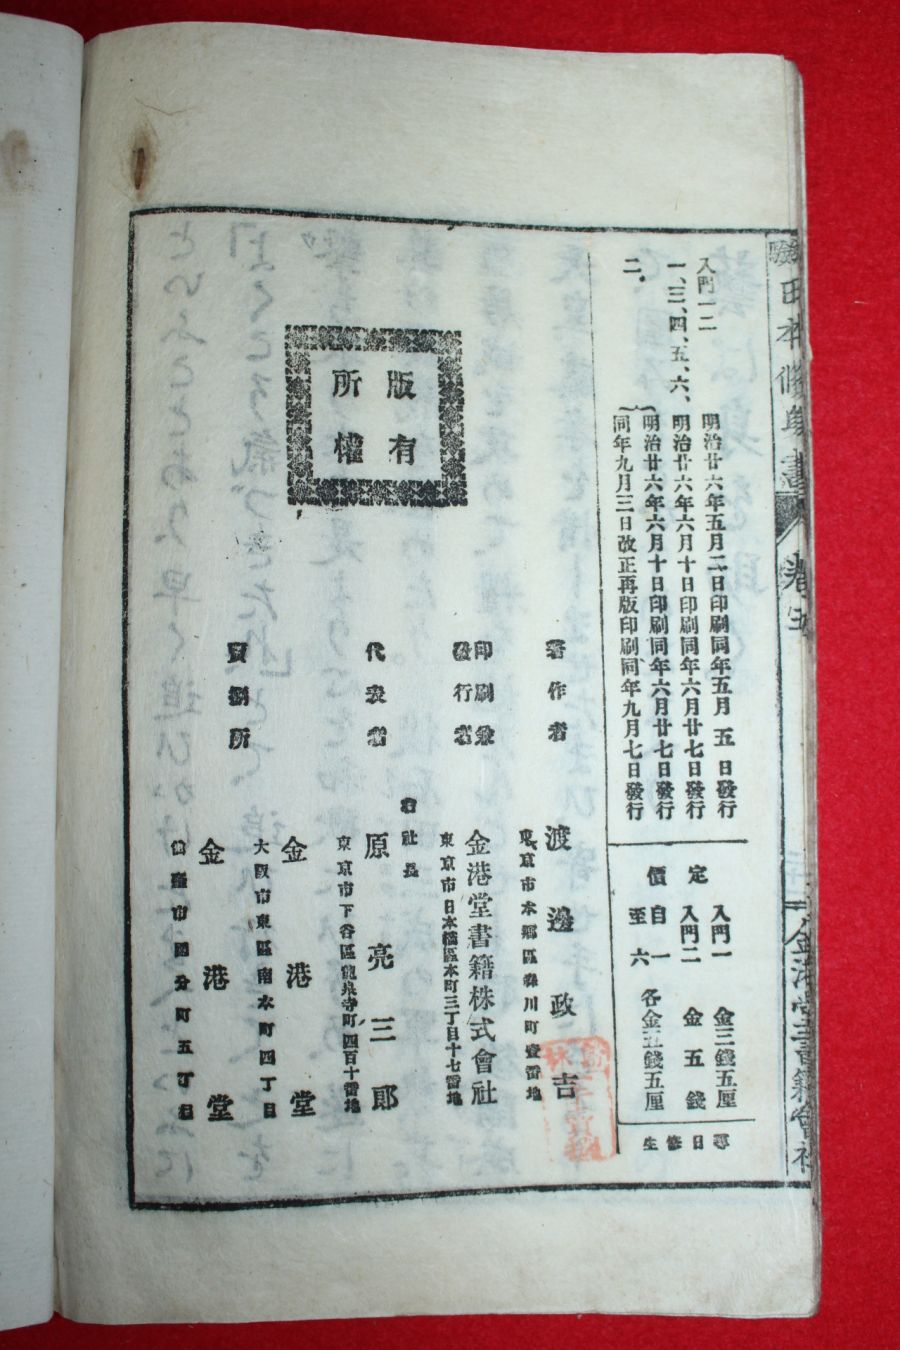 入門一二 明治廿六年五月二日印刷同年五月五日發行
一、三、四、五、六、 明治廿六年六月十日印刷同年六月廿七日發行
二、 明治廿六年六月十日印刷同年六月廿七日發行
同年九月三日改正再版印刷同年九月七日發行
定價
入門一 金三錢五厘
入門二 金五錢
自一至六 各金五錢五厘
尋日修生
版權所有
著作者 渡邊政吉
東京市本鄉區森川町壹番地
印刷兼發行者 金港堂書籍株式會社
東京市日本橋區本町三丁目十七番地
右社長
代表者 原亮三郎
東京市下谷區龍泉寺町四百十番地
賣捌所 金港堂
大阪市東區南本町四丁目
金港堂
市國分町五丁目
日本修身書 卷五
金港堂書籍會社